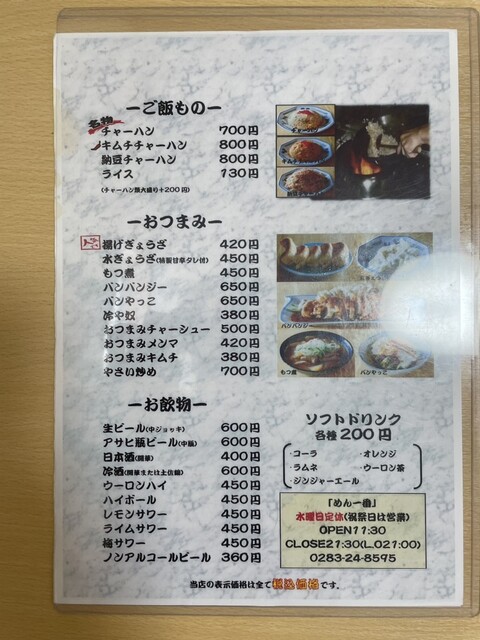 ーご飯ものー
名物
チャーハン 700円
キムチチャーハン 800円
納豆チャーハン 800円
ライス 130円
(チャーハン類大盛り+200円)
チャーハン
キムチチャーハン
納豆チャーハン
ーおつまみー
揚げぎょうざ 420円
水ぎょうざ(特製甘辛タレ付) 450円
もつ煮 450円
バンバンジー 650円
バンやっこ 650円
冷や奴 380円
おつまみチャーシュー 500円
おつまみメンマ 420円
おつまみキムチ 380円
やさい炒め 700円
バンバンジー
もつ煮
バンやっこ
ーお飲物ー
生ビール(中ジョッキ) 600円
アサヒ瓶ビール(中瓶) 600円
日本酒(開華) 400円
冷酒(開華または土佐鶴) 600円
ウーロンハイ 450円
ハイボール 450円
レモンサワー 450円
ライムサワー 450円
梅サワー 450円
ノンアルコールビール 360円
ソフトドリンク
各種200円
・コーラ ・オレンジ
・ラムネ ・ウーロン茶
・ジンジャーエール
「めん一番」
水曜日定休(祝祭日は営業)
OPEN11:30
CLOSE21:30(L.O21:00)
0283-24-8595
当店の表示価格は全て税込価格です。